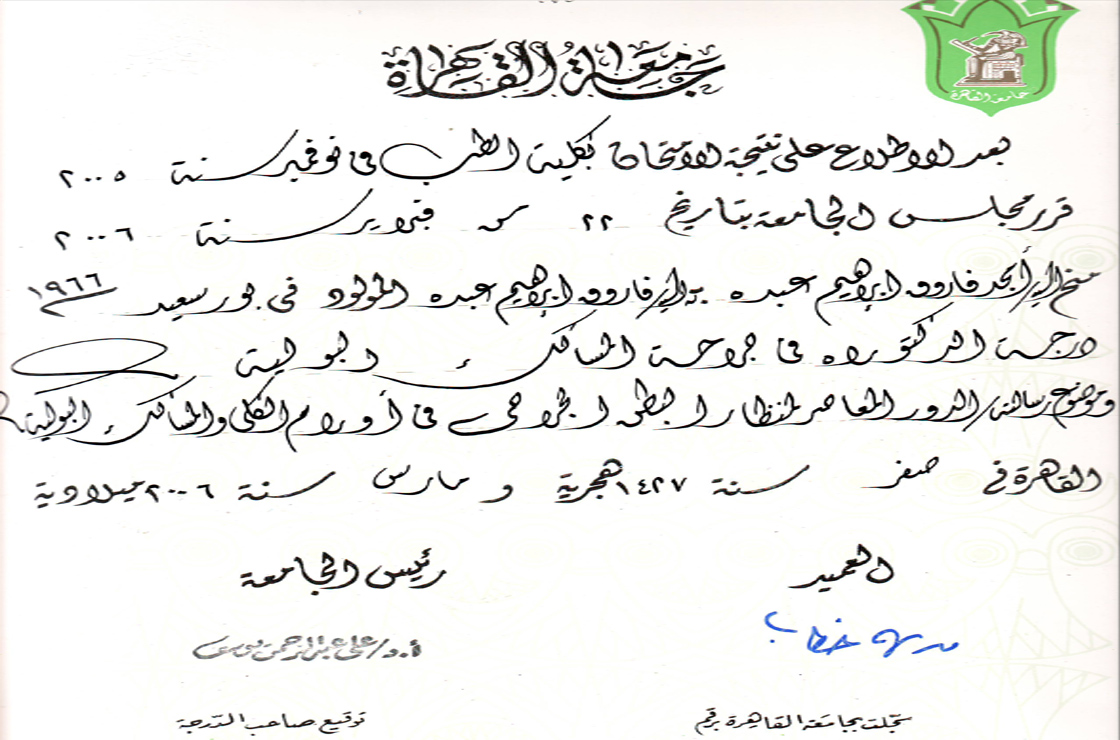 جامعة القاهرة
جامعة القاهرة
بعد الاطلاع على نتيجة الامتحان بكلية الطب فى نوفمبر سنة ٢٠٠٥
قرر مجلس الجامعة بتاريخ ٢٢ من فبراير سنة ٢٠٠٦
منح السيد/ أمجد فاروق ابراهيم عبده بن السيد/ فاروق ابراهيم عبده المولود فى بور سعيد ١٩٦٦
درجة الدكتوراه فى جراحة المسالك البولية
وموضوع رسالته/ الدور المعاصر لمنظار البطن الجراحى فى أورام الكلى والمسالك البولية
القاهرة فى صفر سنة ١٤٢٧ هجرية و مارس سنة ٢٠٠٦ ميلادية
العميد رئيس الجامعة
خطاب أ.د/ على عبد الرحمن يوسف
سجلت بجامعة القاهرة برقم توقيع صاحب الدرجة